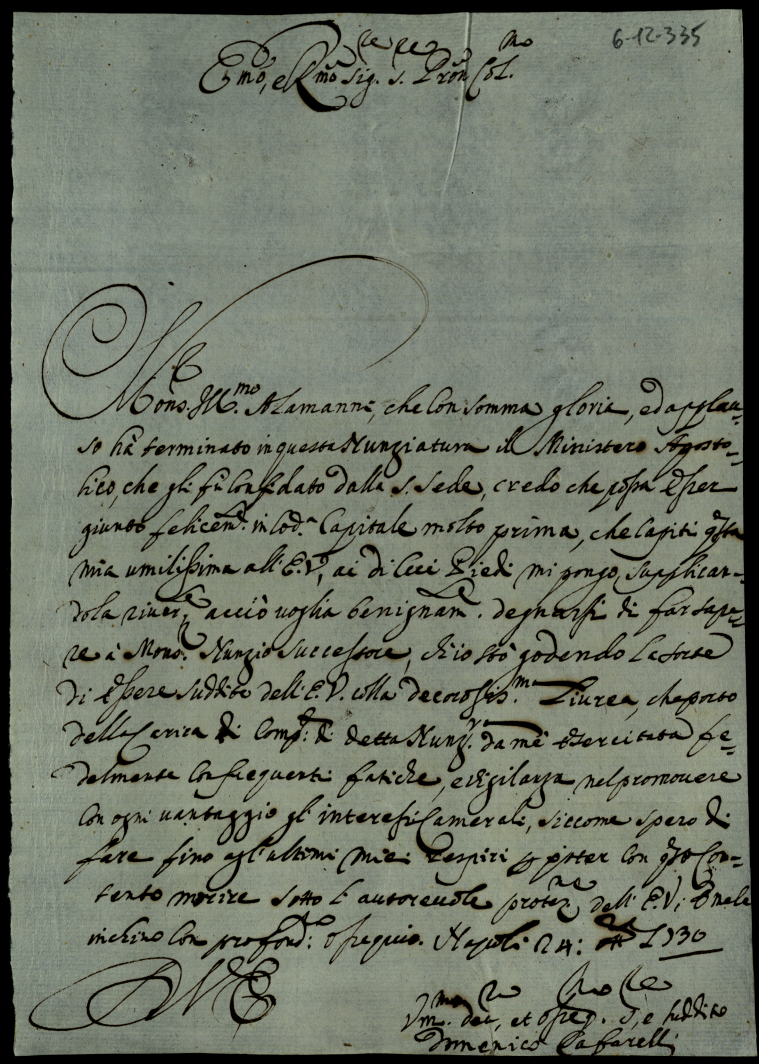 6-12-335
Em̃o, e Rm̃o Sig.re S. Prõn Col.mo
Mons.re Ill.mo Alamanni, che con somma gloria, ed applau=
so hà terminato in questa Nunziatura il Ministero Aposto=
lico, che gli fù confidato dalla S. Sede, credo che possa esser
giunto felicem.te in Cod.a Capitale molto prima, che Capiti q̃sta
mia umilissima all'E.V., ai di Cui Piedi mi pongo, supplican=
dola river.te acciò voglia benignam.te degnarsi di far sape=
re à Mons.re Nunzio Successore, ch'io stò godendo la sorte
di essere suddito dell'E.V. colla decorosiss.ma Livrea, che porto
della Carica di Comp.re di detta Nunz.ra da mè esercitata fe=
delmente con frequenti fatiche, e vigilanza nel promovere
con ogni vantaggio gl'interessi Camerali, siccome spero di
fare fino agl'ultimi miei respiri p poter con q̃sto Con=
tento morire sotto l'autorevole protez.ne dell'E.V.; E nele
inchino con profond.mo ossequio. Napoli 24: 1730
D V E
Vm.mo dev.mo, et osseq. S.re, e suddito
Domenico Caffarelli